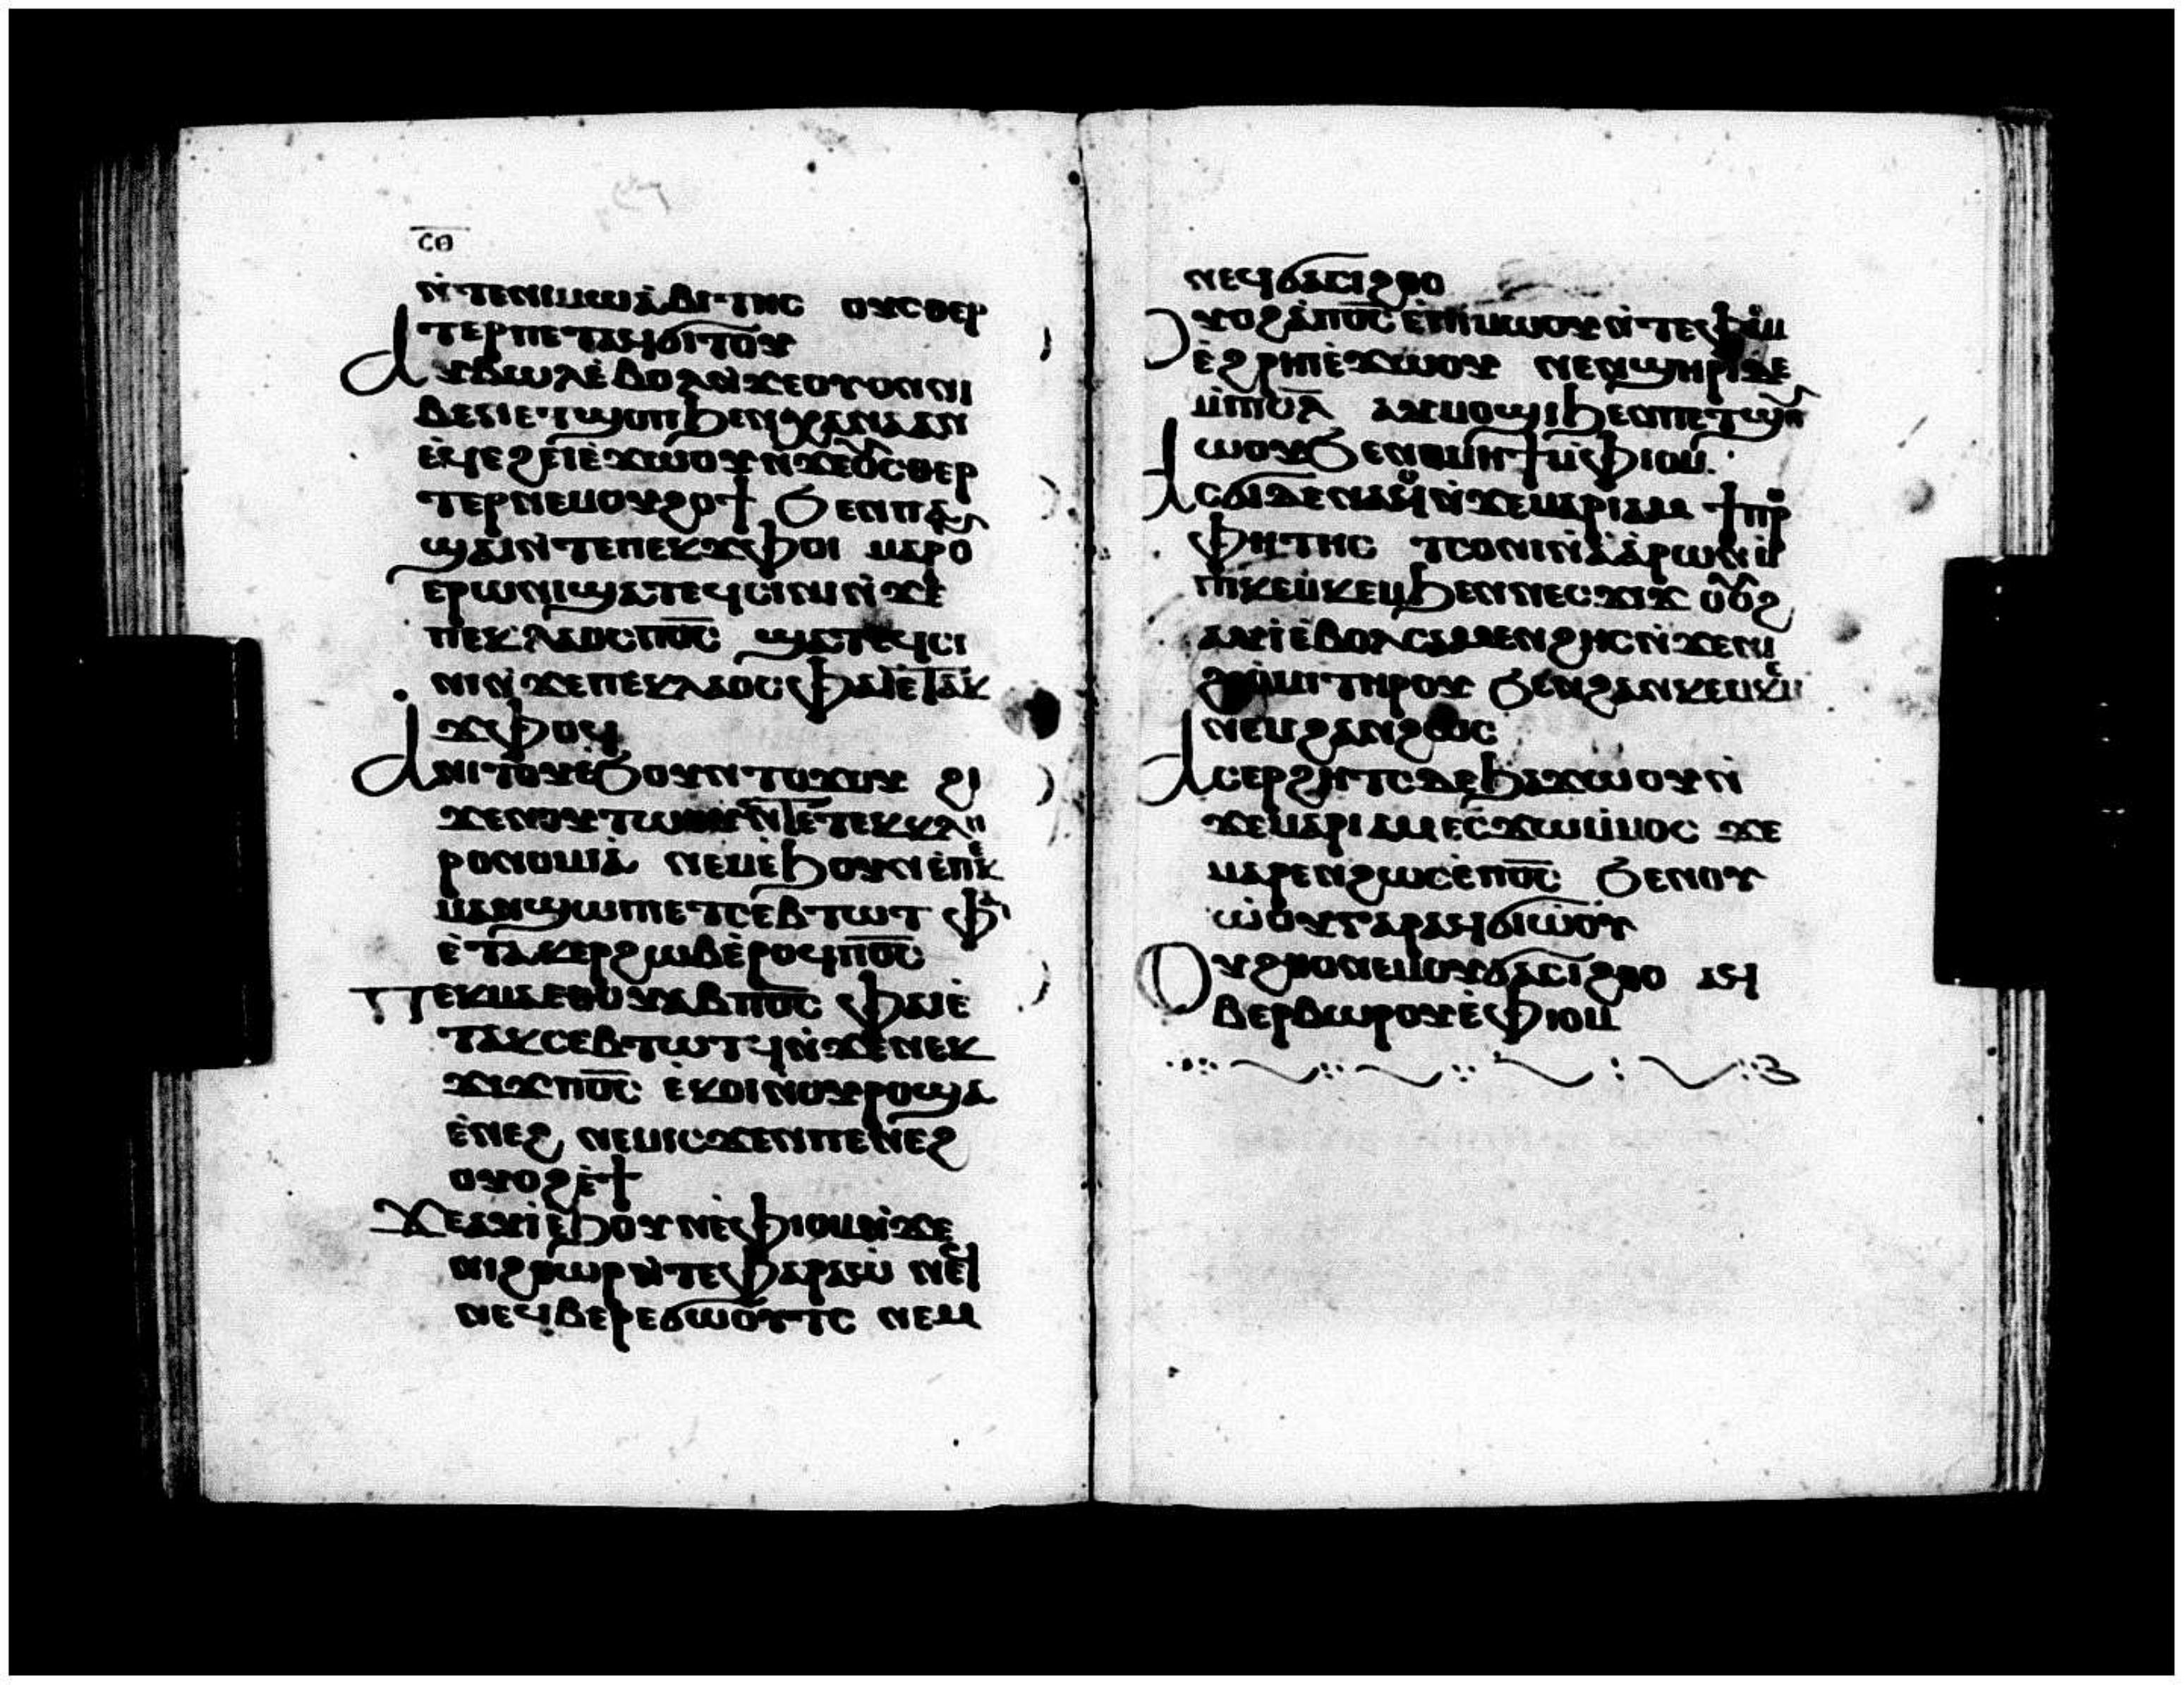 ⲥⲑ
ⲛ̀ⲧⲉⲛⲓⲙⲱⲁ̀ⲃⲓⲧⲏⲥ ⲟⲩⲥⲑⲉⲣ
ⲧⲉⲣⲡⲉⲧⲁϥϭⲓⲧⲟⲩ
ⲁⲩⲃⲱⲗⲉ̀ⲃⲟⲗⲛ̀ϫⲉⲟⲩⲟⲛⲛⲓ
ⲃⲉⲛⲉⲧϣⲟⲡϧⲉⲛⲭⲁⲛⲁⲁⲛ
ⲉ̀ϥⲉ̀ϩⲉⲓⲉ̀ϫⲱⲟⲩⲛ̀ϫⲉⲟ̅ⲩ̅ⲥⲑⲉⲣ
ⲧⲉⲣⲛⲉⲙⲟⲩϩⲟϯ ϧⲉⲛⲡⲁ̀
ϣⲁⲓⲛ̀ⲧⲉⲡⲉⲕϫⲫⲟⲓ ⲙⲁⲣⲟ
ⲉⲣⲱⲛⲓϣⲁⲧⲉϥⲥⲓⲛⲓⲛ̀ϫⲉ
ⲡⲉⲕⲗⲁⲟⲥⲡⲟ̅ⲥ̅ ϣⲁⲧⲉϥⲥⲓ
ⲛⲓⲛ̀ϫⲉⲡⲉⲕⲗⲁⲟⲥⲫⲁⲓⲉ̀ⲧⲁⲕ
ϫⲫⲟϥ
ⲁⲛⲓⲧⲟⲩⲉ̀ϧⲟⲩⲛⲧⲟϫⲟⲩ ϩⲓ
ϫⲉⲛⲟⲩⲧⲱⲟⲩⲛ̀ⲧⲉⲧⲉⲕⲕⲗⲏ
ⲣⲟⲛⲟⲙⲓⲁ̀ ⲛⲉⲙⲉ̀ϧⲟⲩⲛⲉ̀ⲡⲉⲕ
ⲙⲁⲛϣⲱⲡⲓⲉⲧⲥⲉⲃⲧⲱⲧ ⲫⲁⲓ
ⲉ̀ⲧⲁⲕⲉⲣϩⲱⲃⲉ̀ⲣⲟϥⲡⲟ̅ⲥ̅
ⲡⲉⲕⲙⲁⲉⲑⲟⲩⲁⲃⲡⲟ̅ⲥ̅ ⲫⲁⲓⲉ̀
ⲧⲁⲕⲥⲉⲃⲧⲱⲧϥⲛ̀ϫⲉⲛⲉⲕ
ϫⲓϫⲡⲟ̅ⲥ̅ ⲉ̀ⲕⲟⲓⲛ̀ⲟⲩⲣⲟϣⲁ
ⲉ̀ⲛⲉϩ ⲛⲉⲙⲓⲥϫⲉⲛⲡⲉⲛⲉϩ
ⲟⲩⲟϩⲉ̀ϯ
ϫⲉⲁⲩⲓ̀ⲉ̀ϧⲟⲩⲛⲉ̀ⲫⲓⲟⲙⲛ̀ϫⲉ
ⲛⲓϩⲑⲱⲣⲛ̀ⲧⲉⲫⲁⲣⲁⲱ̀ ⲛⲉⲙ
ⲛⲉϥⲃⲉⲣⲉϭⲱⲟⲩⲧⲥ ⲛⲉⲙ
ⲛⲉϥϭⲁⲥⲓϩⲑⲟ
ⲟⲩⲟϩⲁ̀ⲡⲟ̅ⲥ̅ⲉ̀ⲛⲓⲙⲱⲟⲩⲛ̀ⲧⲉⲫⲓⲟⲙ
ⲉ̀ϩⲣⲏⲓⲉ̀ϫⲱⲟⲩ ⲛⲉⲛϣⲏⲣⲓⲇⲉ
ⲙ̀ⲡⲓⲥ̅ⲗ̅ ⲁⲩⲙⲟϣⲓϧⲉⲛⲡⲉⲧϣⲟⲩ
ⲱⲟⲩϧⲉⲛⲑⲙⲏϯⲙ̀ⲫⲓⲟⲙ
ⲁⲥϭⲓⲇⲉⲛⲁⲥⲛ̀ϫⲉⲙⲁⲣⲓⲁⲙ ϯⲡⲣⲟ
ⲫⲏⲧⲏⲥ ⲧⲥⲟⲛⲓⲛ̀ⲁ̀ⲁⲣⲱⲛⲙ̀
ⲡⲓⲕⲉⲙⲕⲉⲙϧⲉⲛⲛⲉⲥϫⲓϫ ⲟⲩⲟϩ
ⲁⲩⲓ̀ⲉ̀ⲃⲟⲗⲥⲁⲙⲉⲛϩⲏⲥⲛ̀ϫⲉⲛⲓ
ϩⲓⲟ̀ⲙⲓⲧⲏⲣⲟⲩ ϧⲉⲛϩⲁⲛⲕⲉⲙⲕⲉⲙ
ⲛⲉⲙϩⲁⲛϩⲱⲥ
ⲁⲥⲉⲣϩⲏⲧⲥⲇⲉϧⲁϫⲱⲟⲩⲛ̀
ϫⲉⲙⲁⲣⲓⲁⲙⲉⲥϫⲱⲙ̀ⲙⲟⲥ ϫⲉ
ⲙⲁⲣⲉⲛϩⲱⲥⲉ̀ⲡⲟ̅ⲥ̅ ϧⲉⲛⲟⲩ
ⲱ̀ⲟⲩⲅⲁⲣⲁϥϭⲓⲱ̀ⲟⲩ
ⲟⲩϩⲑⲟⲛⲉⲙⲟⲩϭⲁⲥⲓϩⲑⲟ ⲁϥ
ⲃⲉⲣⲃⲱⲣⲟⲩⲉ̀ⲫⲓⲟⲙ